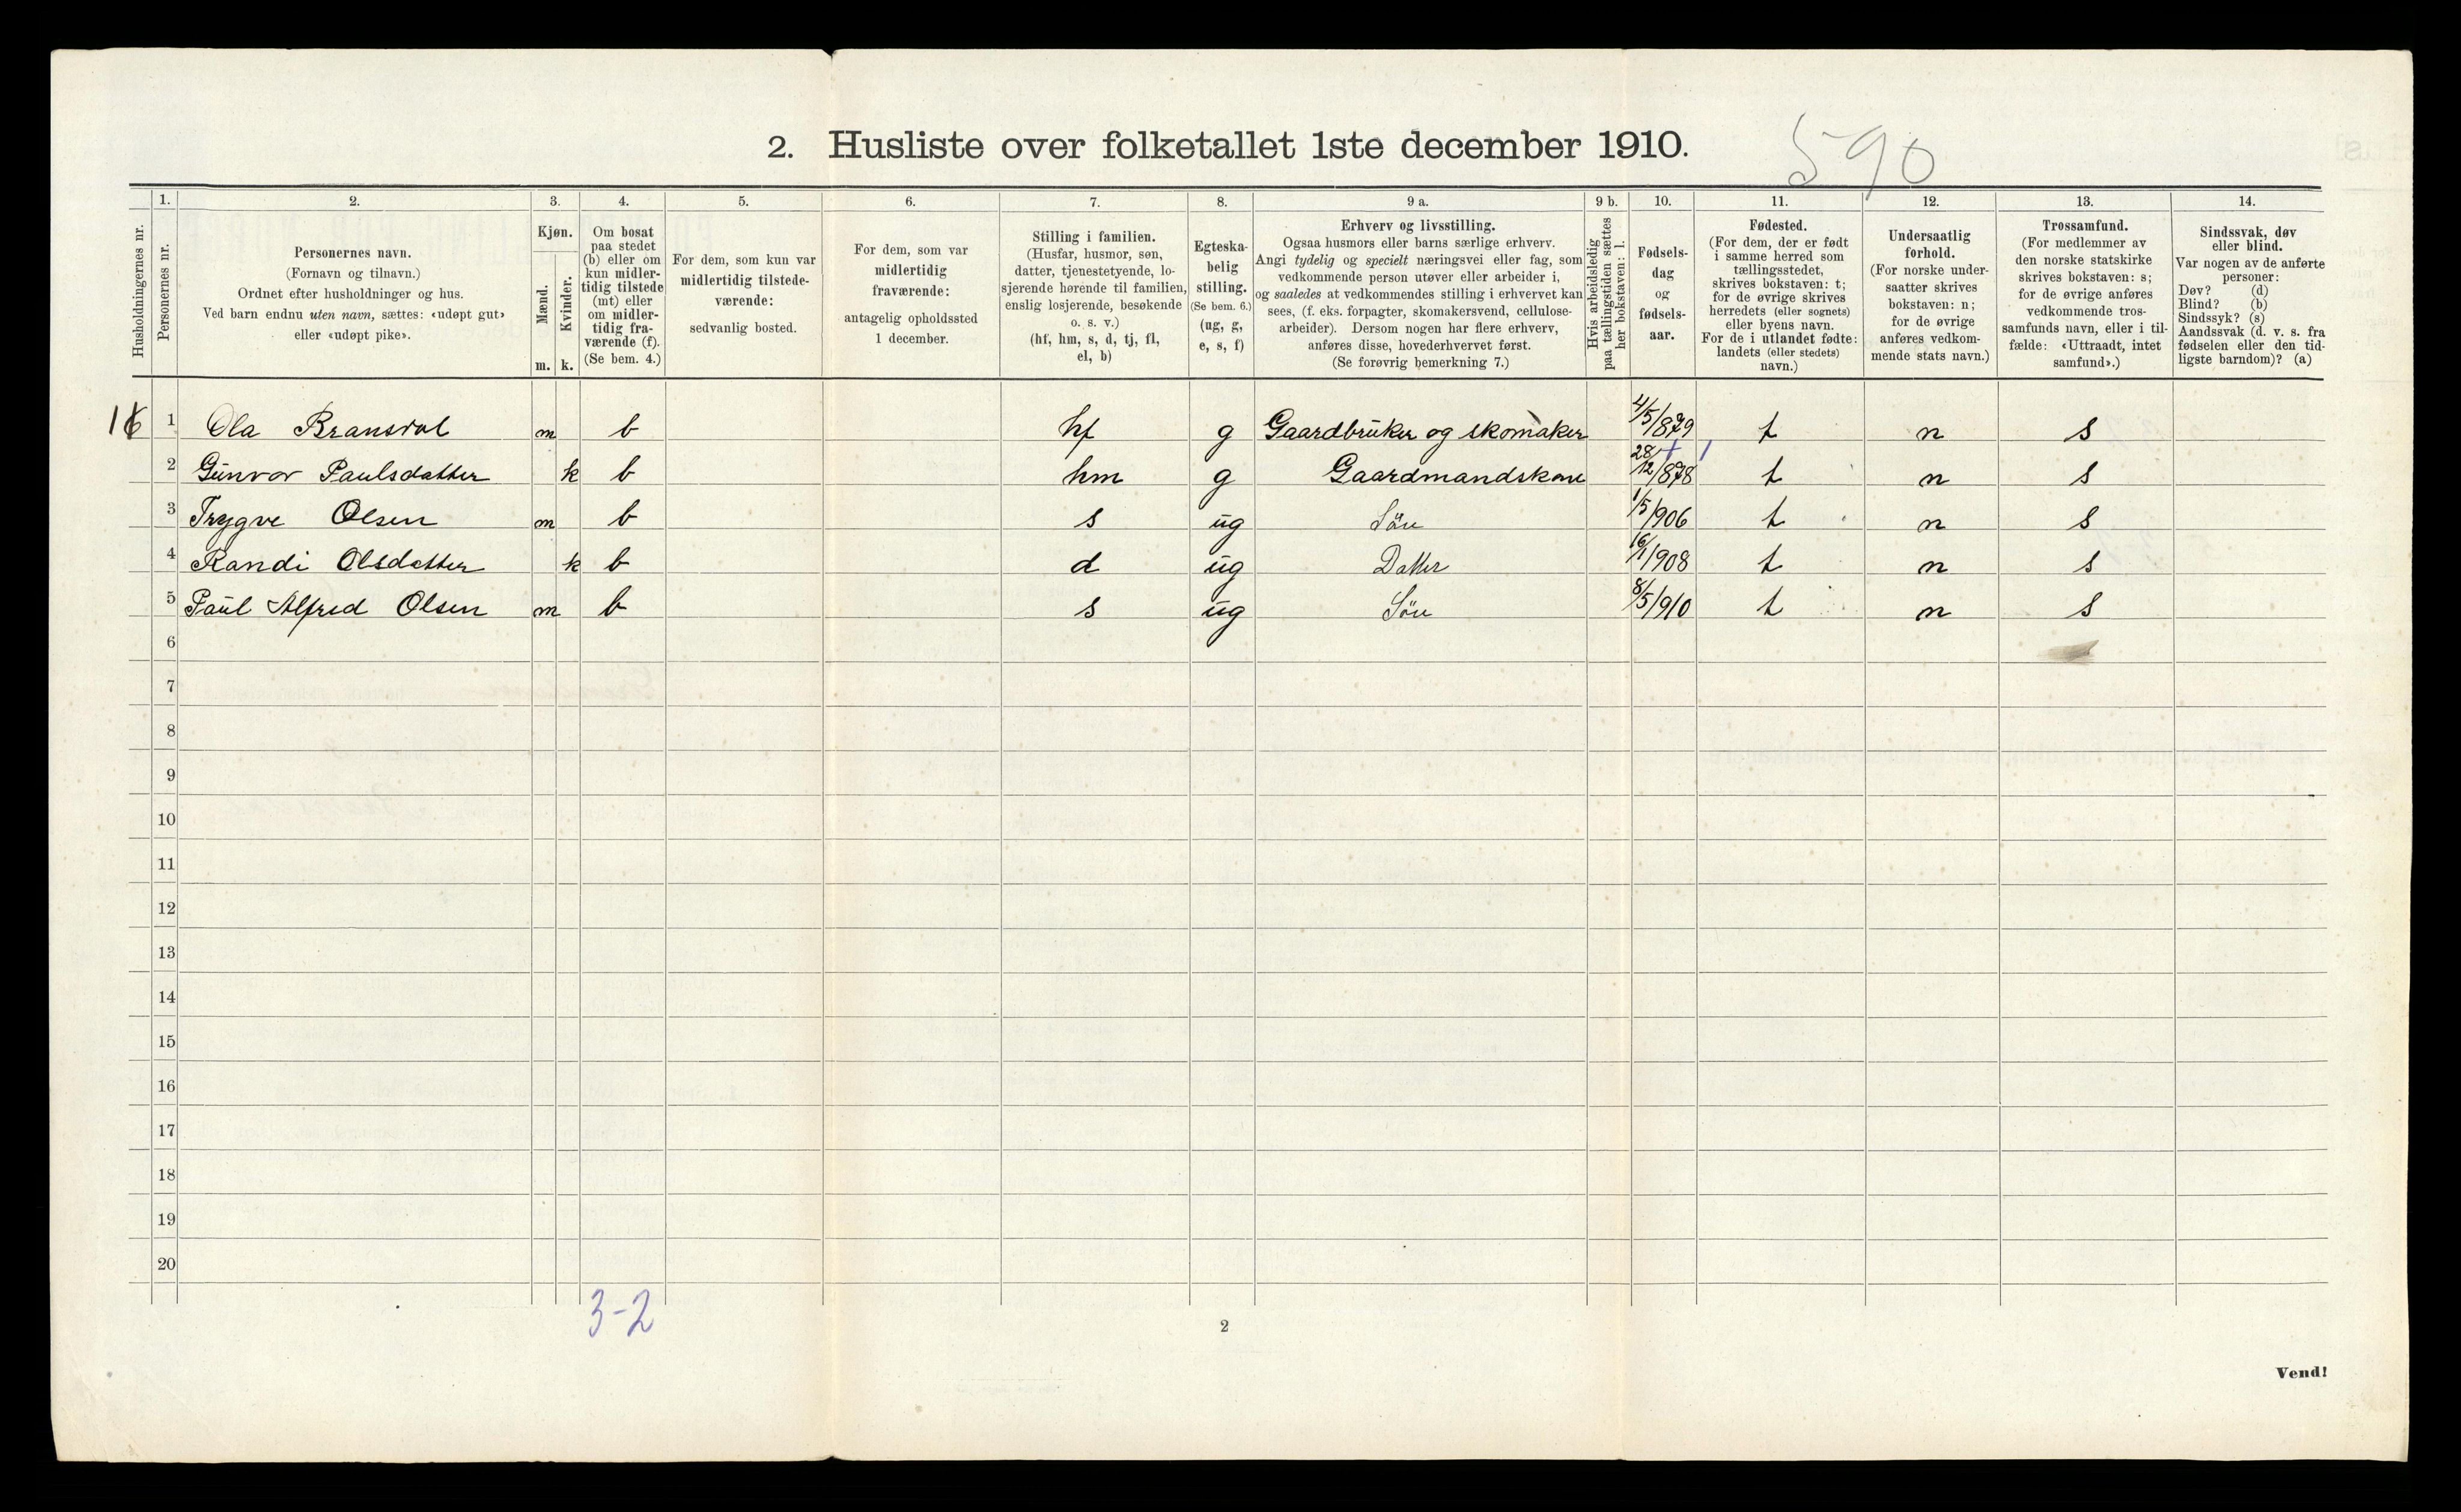 2. Husliste over folketallet 1ste december 1910.
590
Husholdningernes nr.
1.
Personernes nr.
2.
Personernes navn.
(Fornavn og tilnavn.)
Ordnet efter husholdninger og hus.
Ved barn endnu uten navn, sættes: «udøpt gut»
eller «udøpt pike».
3.
Kjøn.
Mænd.
Kvinder.
m. k.
4.
Om bosat
paa stedet
(b) eller om
kun midler-
tidig tilstede
(mt) eller
om midler-
tidig fra-
værende (f).
(Se bem. 4.)
5.
For dem, som kun var
midlertidig tilstede-
værende:
sedvanlig bosted.
6.
For dem, som var
midlertidig
fraværende:
antagelig opholdssted
1 december.
7.
Stilling i familien.
(Husfar, husmor, søn,
datter, tjenestetyende, lo-
sjerende hørende til familien,
enslig losjerende, besøkende
o. s. v.)
(hf, hm, s, d, tj, fl,
el, b)
8.
Egteska-
belig
stilling.
(Se bem. 6.)
(ug, g,
e, s, f)
9 a.
Erhverv og livsstilling.
Ogsaa husmors eller barns særlige erhverv.
Angi tydelig og specielt næringsvei eller fag, som
vedkommende person utøver eller arbeider i,
og saaledes at vedkommendes stilling i erhvervet kan
sees, (f. eks. forpagter, skomakersvend, cellulose-
arbeider). Dersom nogen har flere erhverv,
anføres disse, hovederhvervet først.
(Se forøvrig bemerkning 7.)
9 b.
Hvis arbeidsledig
paa tællingstiden sættes
her bokstaven: l.
10.
Fødsels-
dag
og
fødsels-
aar.
11.
Fødested.
(For dem, der er født
i samme herred som
tællingsstedet,
skrives bokstaven: t;
for de øvrige skrives
herredets (eller sognets)
eller byens navn.
For de i utlandet fødte:
landets (eller stedets)
navn.)
12.
Undersaatlig
forhold.
(For norske under-
saatter skrives
bokstaven: n;
for de øvrige
anføres vedkom-
mende stats navn.)
13.
Trossamfund.
(For medlemmer av
den norske statskirke
skrives bokstaven: s;
for de øvrige anføres
vedkommende tros-
samfunds navn, eller i til-
fælde: «Uttraadt, intet
samfund».)
14.
Sindssvak, døv
eller blind.
Var nogen av de anførte
personer:
Døv? (d)
Blind? (b)
Sindssyk? (s)
Aandssvak (d. v. s. fra
fødselen eller den tid-
ligste barndom)? (a)
1 Ola m b hf g Gaardbruker og skomaker 4/5/879 t n s
2 Gunvor Paulsdatter k b hm g Gaardmandskone 28/12/878 t n s
3 Trygve Olsen m b s ug Sön 1/5/906 t n s
4 Randi Olsdatter k b d ug Datter 16/1 1908 t n s
5 Paul Alfred Olsen m b s ug Sön 8/5/910 t n s
6
7
8
9
10
11
12
13
14
15
16
17
18
19
20
3-2
2
Vend!